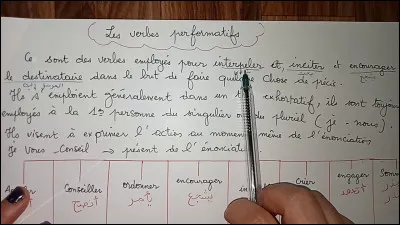 Les verbes performatifs
Ce sont des verbes employés pour interpeler et, inciter et encourager
le destinataire dans le but de faire quelque chose de précis.
Ils s'emploient généralement dans un exhortatif, ils sont toujours
employés à la 1ère personne du singulier ou du pluriel (je - nous).
Ils visent à exprimer l'action au moment même de l'énonciation
Je vous conseil → présent de l'énonciation
Conseiller ordonner encourager crier engager
أنصح يأمر يشجع